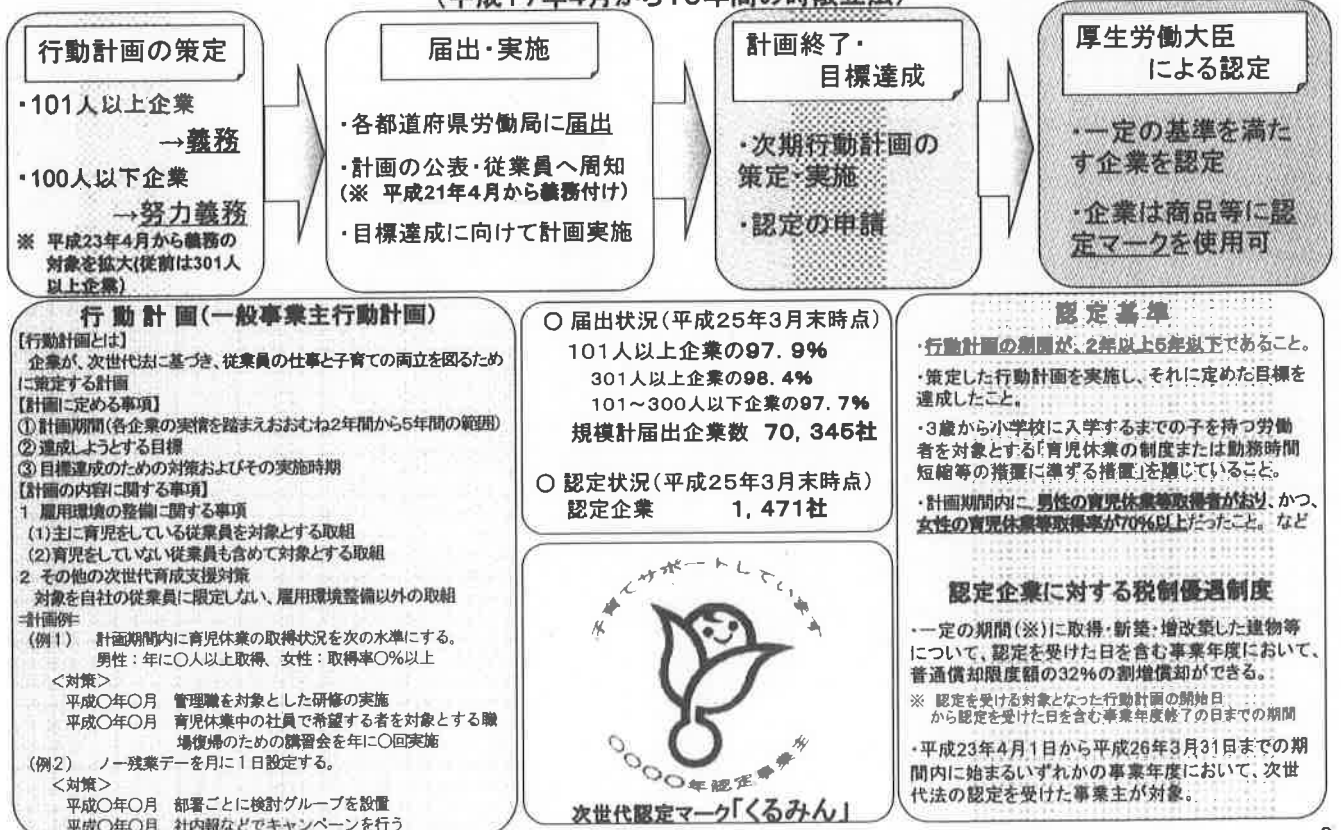 (平成17年4月から10年間の時限立法)
行動計画の策定
・101人以上企業
→義務
・100人以下企業
→努力義務
※ 平成23年4月から義務の
対象を拡大(従前は301人
以上企業)
届出・実施
・各都道府県労働局に届出
・計画の公表・従業員へ周知
(※ 平成21年4月から義務付け)
・目標達成に向けて計画実施
計画終了・
目標達成
・次期行動計画の
策定・実施
・認定の申請
厚生労働大臣
による認定
・一定の基準を満た
す企業を認定
・企業は商品等に認
定マークを使用可
行動計画(一般事業主行動計画)
【行動計画とは】
企業が、次世代法に基づき、従業員の仕事と子育ての両立を図るため
に策定する計画
【計画に定める事項】
①計画期間(各企業の実情を踏まえおおむね2年間から5年間の範囲)
②達成しようとする目標
③目標達成のための対策およびその実施時期
【計画の内容に関する事項】
1 雇用環境の整備に関する事項
(1)主に育児をしている従業員を対象とする取組
(2)育児をしていない従業員も含めて対象とする取組
2 その他の次世代育成支援対策
対象を自社の従業員に限定しない、雇用環境整備以外の取組
=計画例=
(例1) 計画期間内に育児休業の取得状況を次の水準にする。
男性:年に○人以上取得、女性:取得率○%以上
<対策>
平成○年○月 管理職を対象とした研修の実施
平成○年○月 育児休業中の社員で希望する者を対象とする職
場復帰のための講習会を年に○回実施
(例2) ノー残業デーを月に1日設定する。
<対策>
平成○年○月 部署ごとに検討グループを設置
平成○年○月 社内報などでキャンペーンを行う
○ 届出状況(平成25年3月末時点)
101人以上企業の97.9%
301人以上企業の98.4%
101~300人以下企業の97.7%
規模計届出企業数 70,345社
○ 認定状況(平成25年3月末時点)
認定企業 1,471社
子育てサポートしています
○○○○年認定事業主
次世代認定マーク「くるみん」
認定基準
・行動計画の期間が、2年以上5年以下であること。
・策定した行動計画を実施し、それに定めた目標を
達成したこと。
・3歳から小学校に入学するまでの子を持つ労働
者を対象とする「育児休業の制度または勤務時間
短縮等の措置に準ずる措置」を講じていること。
・計画期間内に、男性の育児休業等取得者がおり、かつ、
女性の育児休業等取得率が70%以上だったこと。 など
認定企業に対する税制優遇制度
・一定の期間(※)に取得・新築・増改築した建物等
について、認定を受けた日を含む事業年度において、
普通償却限度額の32%の割増償却ができる。
※ 認定を受ける対象となった行動計画の開始日
から認定を受けた日を含む事業年度終了の日までの期間
・平成23年4月1日から平成26年3月31日までの期
間内に始まるいずれかの事業年度において、次世
代法の認定を受けた事業主が対象。